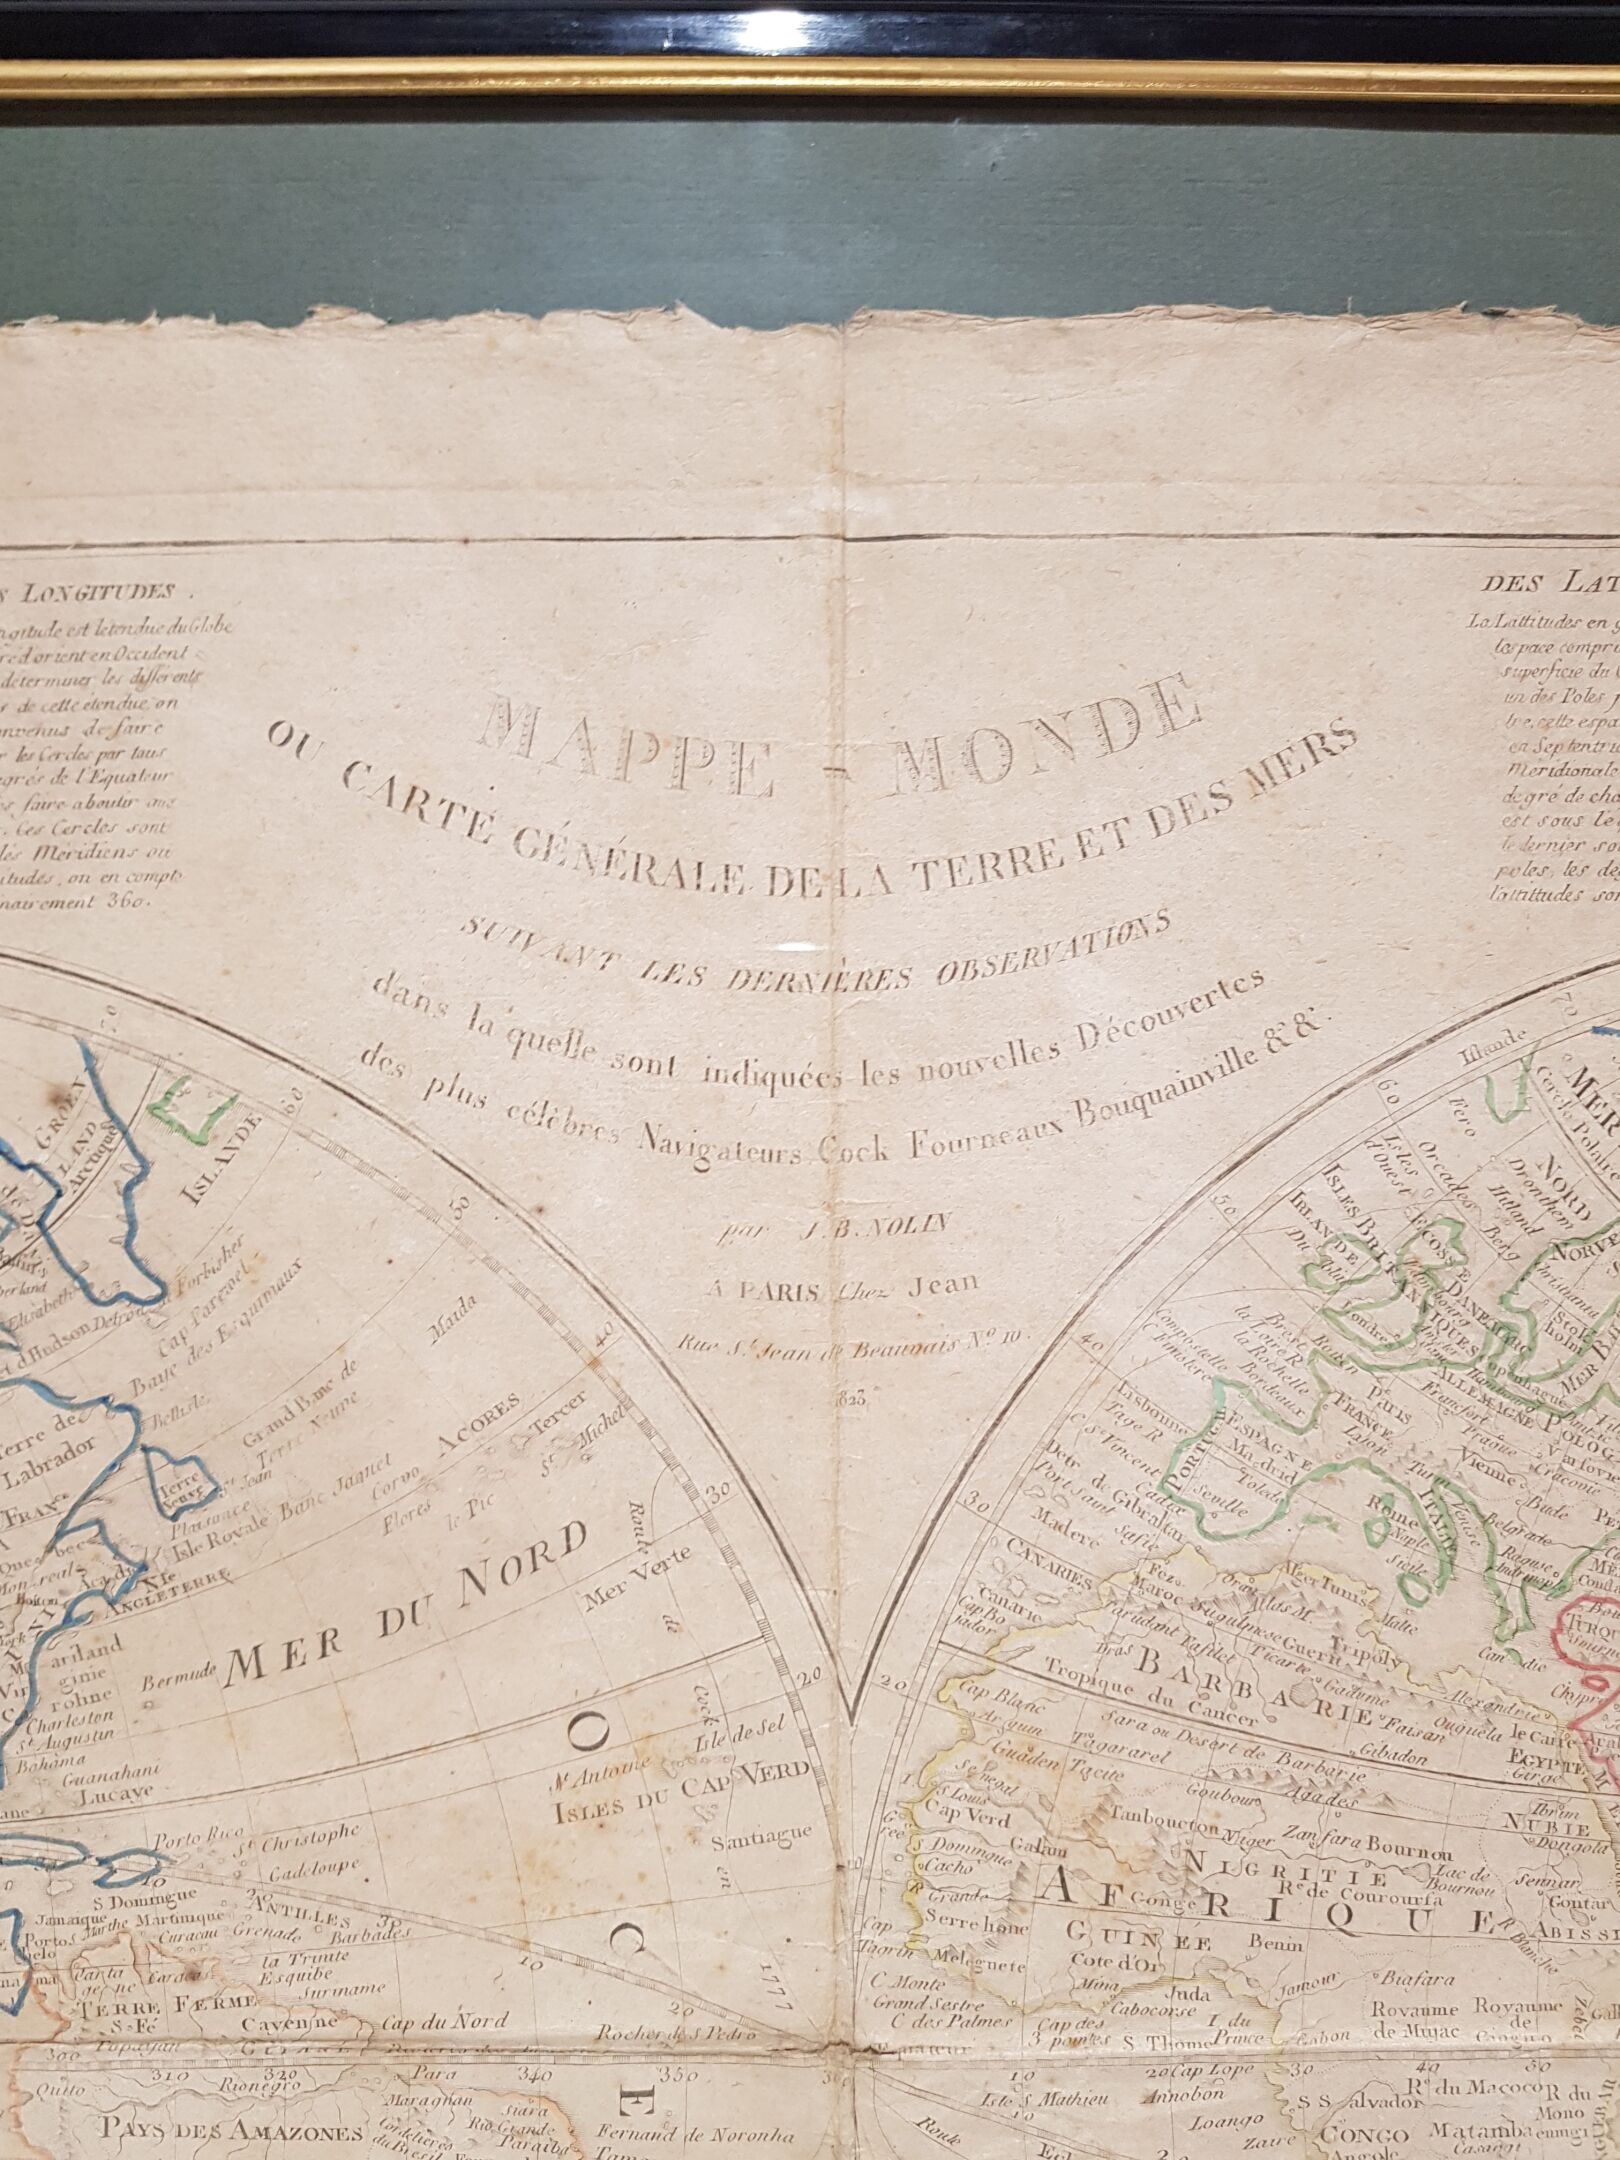 LONGITUDES .
est letendue du Globe
d'orient en Occident
déterminer les différents
de cette étendue, on
de faire
les Cercles par tous
de l'Equateur
faire aboutir aux
. Ces Cercles sont
Méridiens ou
, on en compte
360.
MAPPE - MONDE
OU CARTE GÉNÉRALE DE LA TERRE ET DES MERS
SUIVANT LES DERNIÈRES OBSERVATIONS
dans la quelle sont indiquées les nouvelles Découvertes
des plus célèbres Navigateurs Cock Fourneaux Bouquainville &c &c.
par J. B. NOLIN
À PARIS Chez Jean
Rue St. Jean de Beauvais No. 10.
1823.
DES LAT
La Lattitudes en
lespace compri
superficie du
un des Poles
cette espa
en Septentri
Meridionale
degré de cha
est sous le
le dernier so
poles, les de
lattittudes son
70
GROENLAND
Arctique
ISLANDE
60
50
40
30
20
Detroit
Forbisher
Cap Farewel
Baye des Esquimaux
Mauda
Terre de
Labrador
Bellisle
Grand Banc de
Terre Neuve
Terre
Neuve
St Jean
Plaisance
Isle Royale
Banc Jaquet
Corvo
ACORES
Tercer
St Michel
Flores
le Pic
Quebec
Acadie
Boston
NLE
ANGLETERRE
MER DU NORD
Mer Verte
Route
de
Cock
en
1777
ariland
ginie
roline
Charleston
St Augustin
Bermude
Bahama
Guanahani
Lucaye
O
C
E
Isle de Sel
ISLES DU CAP VERD
Santiague
Porto Rico
St Christophe
Gadeloupe
S Domingue
ANTILLES
Jamaique
Marthe
Martinique
Curacau
Grenade
Barbades
la Trinite
Esquibe
Suriname
Caracas
TERRE FERME
S. Fé
Cayenne
Cap du Nord
Popayan
Rocher de S Pedro
10
20
300
310
320
340
350
360
Quito
Rionegro
Para
Maragnan
Siara
Rio Grande
Paraiba
PAYS DES AMAZONES
Cordelieres
du Bresil
Fernand de Noronha
70
Islande
MER
Cercle Polaire
60
Fero
NORD
Orcades
Isles
d'Ouest
Dronthem
Hitland
Berg
NORVE
ISLES BRITANNIQUES
IRLANDE
ECOSSE
Dublin
Londres
50
DANEMARC
Christiania
Stokholm
MER B
Copenhague
Hambourg
ALLEMAGNE
Francfort
Prague
POLOG
Varsovie
Cracovie
Vienne
Bude
Brest
la Loire R
la Rochelle
Bordeaux
Rouen
Paris
FRANCE
Lyon
40
Compostelle
C Finistere
Lisbonne
Tage R
C St Vincent
PORTUGAL
ESPAGNE
Madrid
Tolede
Seville
Cadix
Detr de Gibraltar
Port Saint
Turin
ITALIE
Venise
Rome
Naple
Sicile
Belgrade
Raguse
Andrinople
30
Madere
Safie
CANARIES
Canarie
Cap Bojador
Fez
Maroc
Oran
Alger
Tunis
Atlas M.
Malte
Candie
TURQU
Tarudant
Tafilet
Sugulmese
Guerit
Tripoly
Dras
BARBARIE
Ticarte
Gademe
Faisan
Alexandrie
Ouguela
le Caire
Tropique du Cancer
20
Cap Blanc
Arguin
Sara ou Desert de Barbarie
Gibadon
EGYPTE
Girge
Guaden
Tagararel
Tacite
Senegal
S Louis
Cap Verd
Goubour
Agades
Ibrim
NUBIE
Dongola
Tanboucton
Niger
Zanfara
Bournou
Goree
S Domingue
Cacho
Galam
NIGRITIE
Lac de
Bournou
Sennar
R. Grande
AFRIQUE
Congé
Re. de Courourfa
Gontar
Serrelione
GUINÉE
Benin
ABISSI
R Blanche
Cap
Tagrin
Melegnete
Cote d'Or
Mina
Juda
Jamour
Biafara
C Monte
Cabocorse
Grand Sestre
C des Palmes
Cap des
3 pointes
S Thome
I. du
Prince
Gabon
Royaume
de Mujac
Royaume
de
Zebeé
10
20
30
40
50
Cap Lope
Isle S Mathieu
Annobon
S Salvador
Re. du Macoco
R du
Mono
emugi
Route
Loango
Zaire
CONGO
Matamba
Casangi